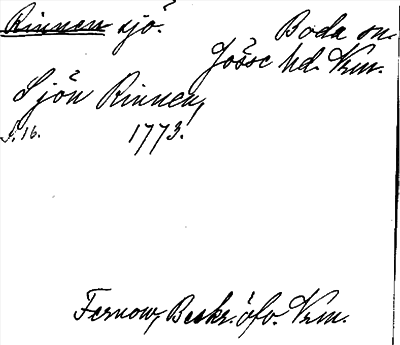 Rinnen sjö.
Boda sn.
Jösse hd. Vrm.
Sjön Rinnen,
S. 16. 1773.
Fernow, Beskr. öfv. Vrm.